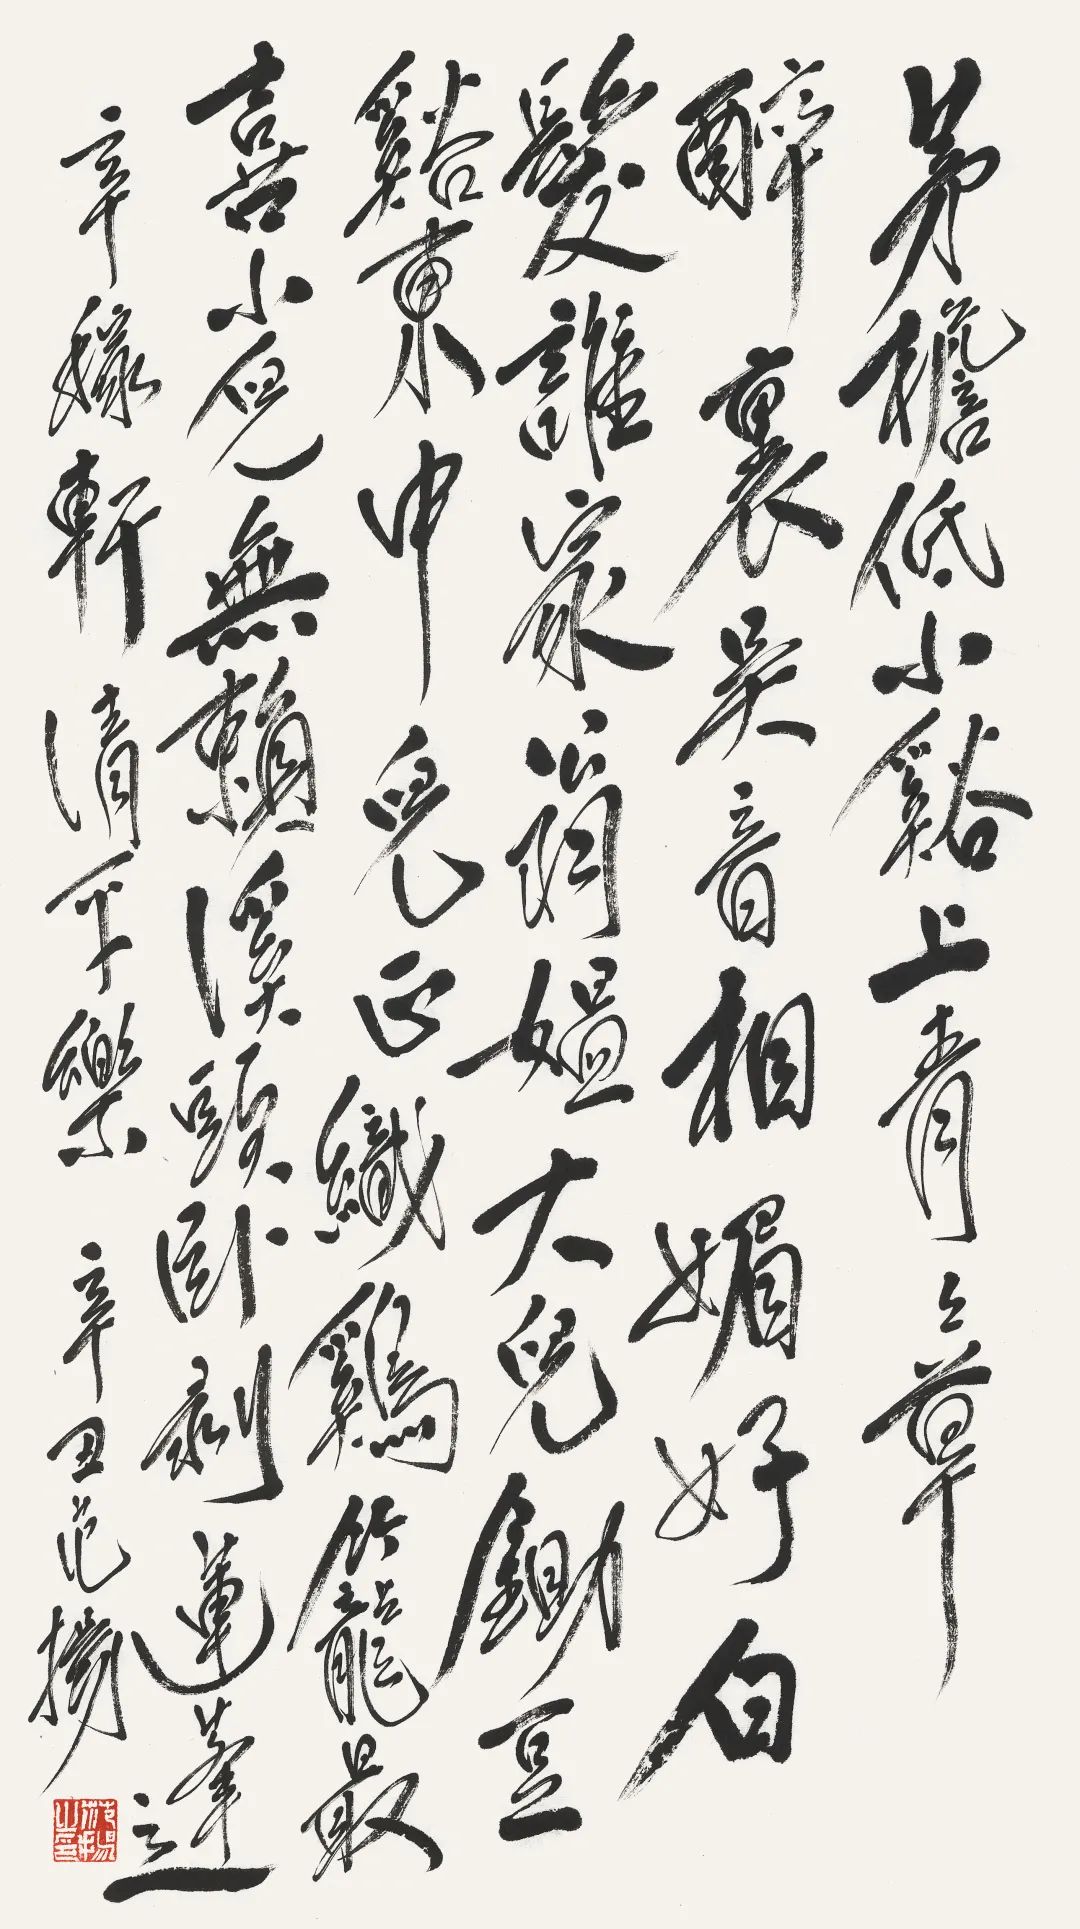 茅檐低小谿上青々草
醉裏吴音相媚好白
髮誰家翁媼大兒鋤豆
谿東中兒正織鷄籠最
喜小兒無賴溪頭卧剥蓮蓬
辛稼軒清平樂 辛丑范揚